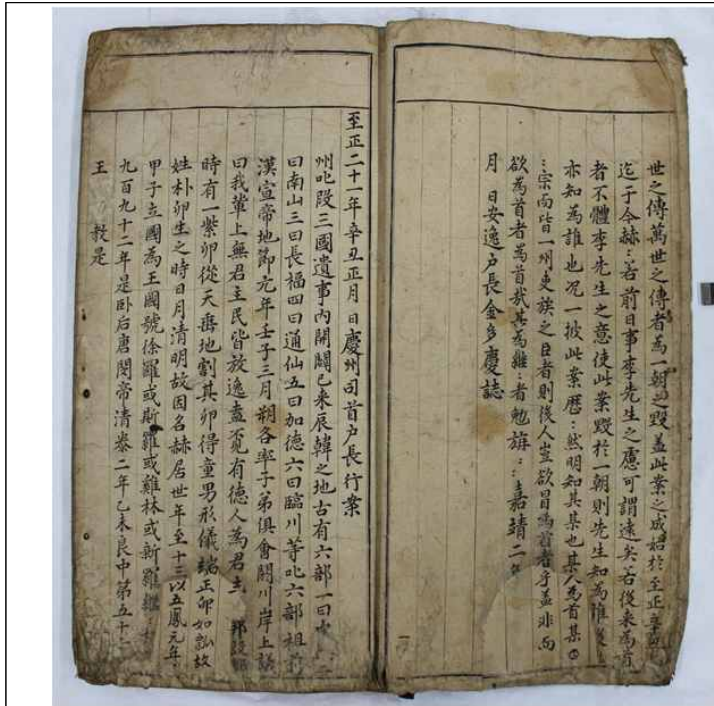 世之傳萬世之傳者為一朝之毀盖此案之成始於至正辛
迄于今赫〻若前日事李先生之慮可謂遠矣若後来為首
者不體李先生之意使此案毀於一朝則先生知為誰
亦知為誰也况一披此案歷〻然明知其某也某人為首某
〻宗而皆一州吏族之巨者則後人豈欲冒為首者乎盖非而
欲為首者為首哉其為繼〻者勉旃〻〻嘉靖二年
月 日安逸户長金多慶誌
至正二十一年辛丑正月 日慶州司首户長行案
州叱段三國遺事內開闢已来辰韓之地古有六部一曰
曰南山三曰長福四曰通仙五曰加德六曰臨川等叱六部祖
漢宣帝地節元年壬子三月朔各率子弟俱會閼川岸上議
曰我輩上無君主民皆放逸盍覔有德人為君主 邦設
時有一紫卵從天垂地割其卵得童男形儀端正卵如瓠故
姓朴卵生之時日月清明故因名赫居世年至十三以五鳳元年
甲子立國為王國號徐羅或斯羅或雞林或新羅繼〻
九百九十二年是卧后唐閔帝清泰二年乙未良中第五十
王 教是